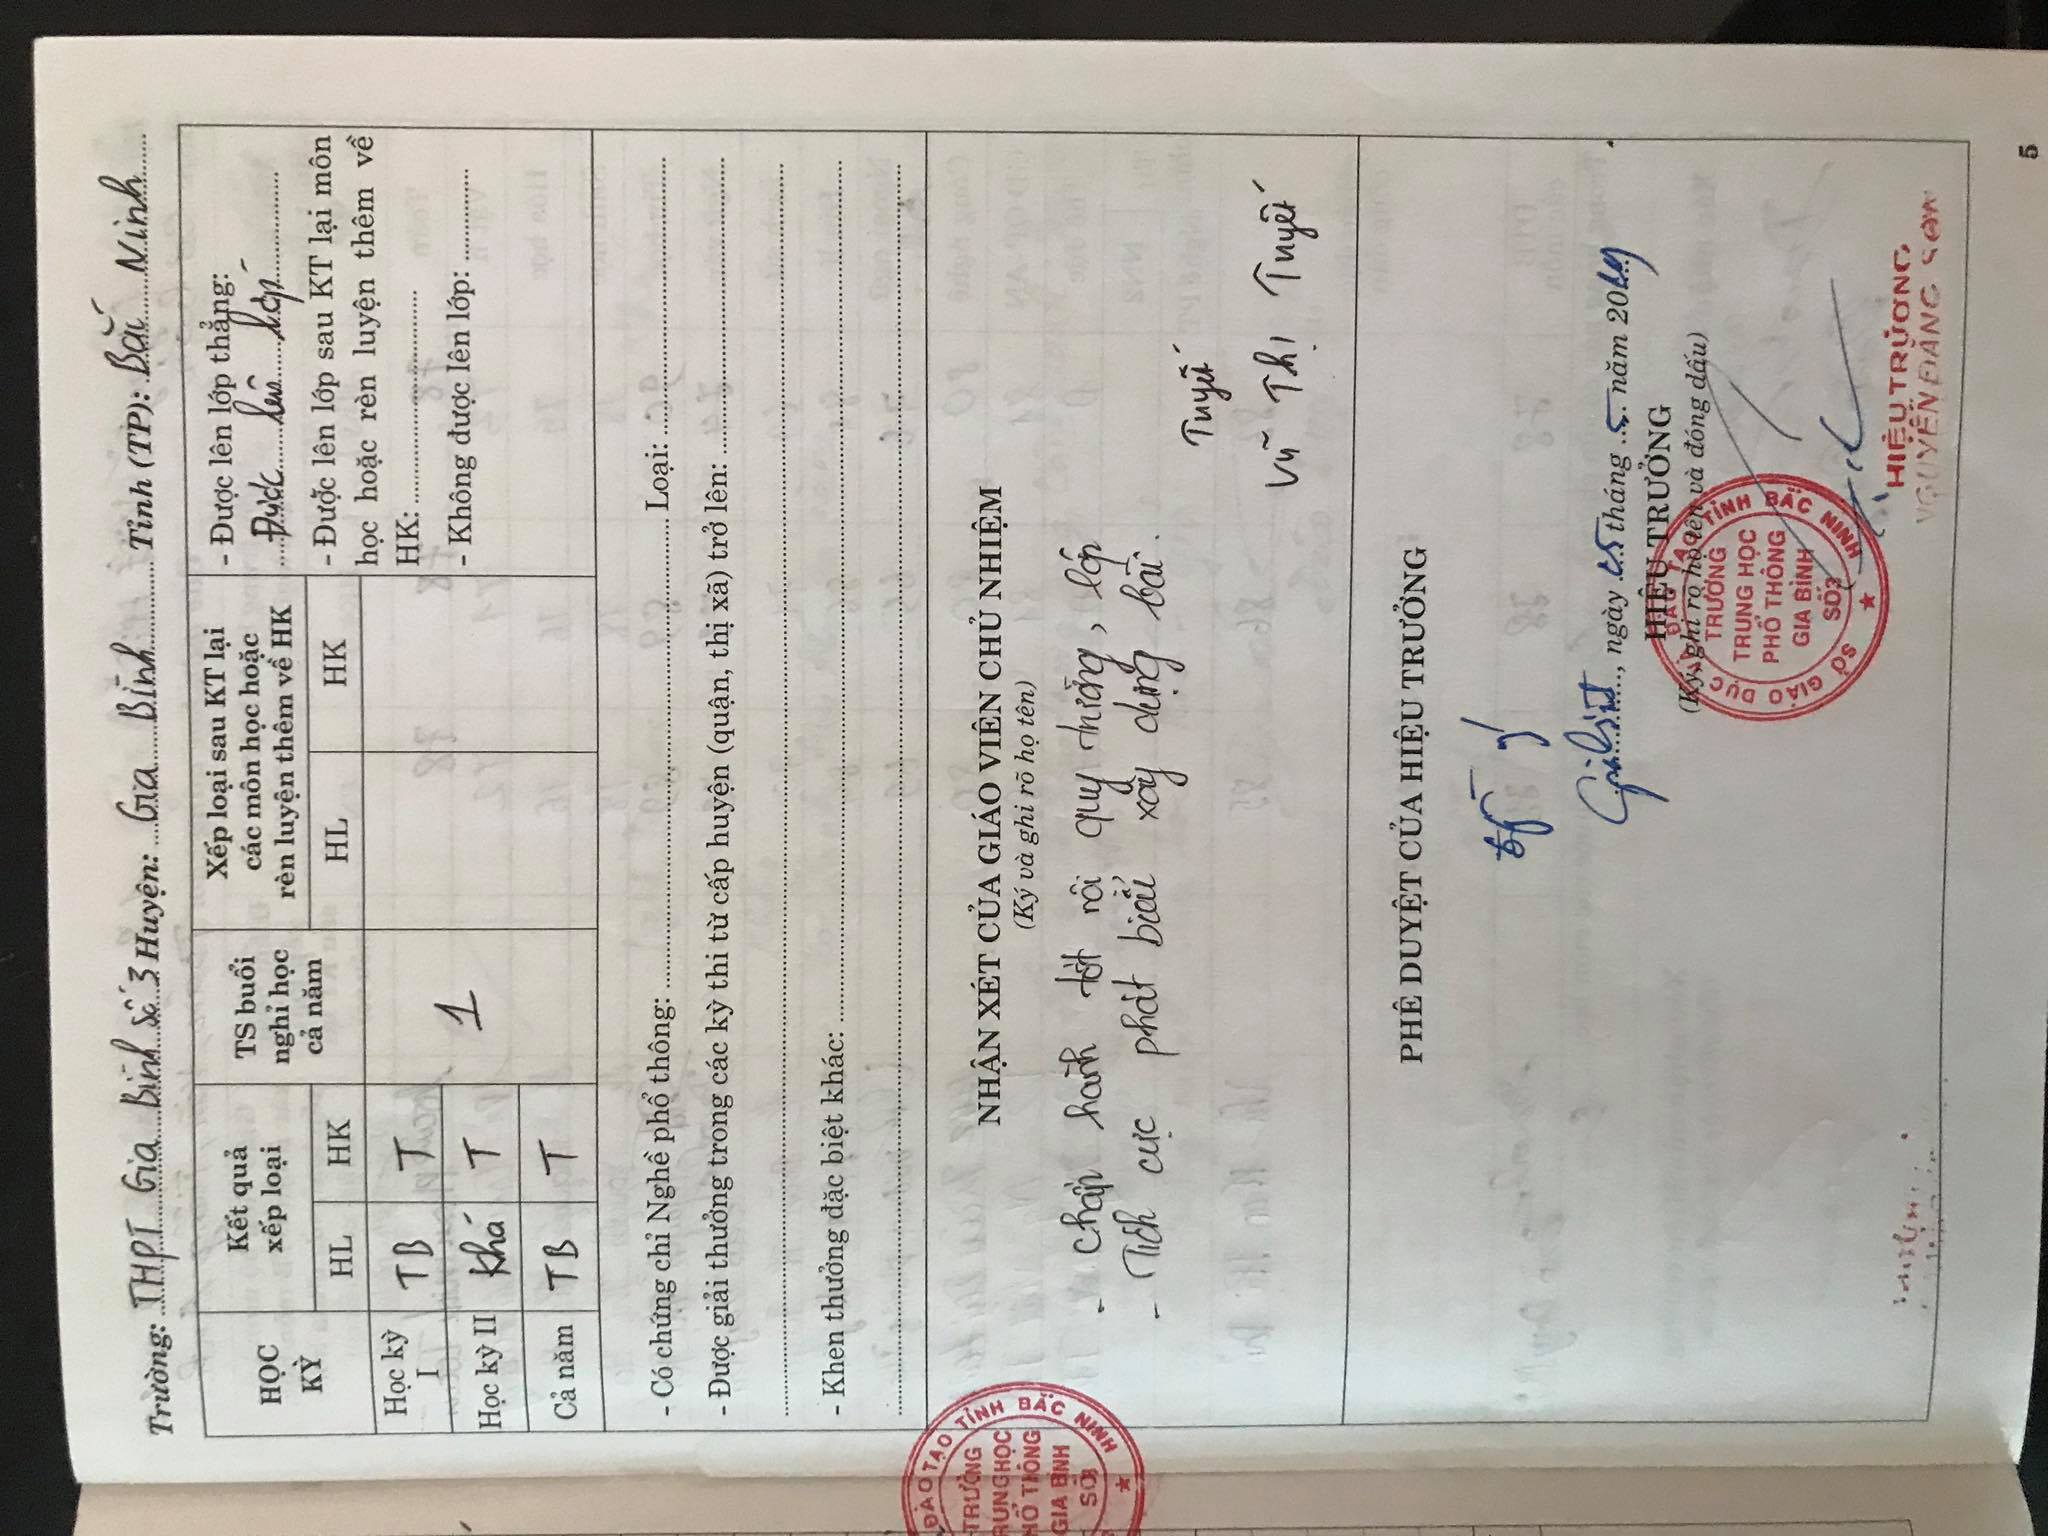 Trường: THPT Gia Bình số 3 Huyện: Gia Bình Tỉnh (TP): Bắc Ninh
HỌC KỲ
Kết quả xếp loại
TS buổi nghỉ học cả năm
Xếp loại sau KT lại các môn học hoặc rèn luyện thêm về HK
HL HK HL HK
Học kỳ I TB T
Học kỳ II Khá T
Cả năm TB T
1
- Được lên lớp thẳng:
Được lên lớp
- Được lên lớp sau KT lại môn
học hoặc rèn luyện thêm về
HK:
- Không được lên lớp:
- Có chứng chỉ Nghề phổ thông: Loại:
- Được giải thưởng trong các kỳ thi từ cấp huyện (quận, thị xã) trở lên:
- Khen thưởng đặc biệt khác:
ĐÀO TẠO TỈNH BẮC NINH
TRƯỜNG
TRUNG HỌC
PHỔ THÔNG
GIA BÌNH
SỐ3
NHẬN XÉT CỦA GIÁO VIÊN CHỦ NHIỆM
(Ký và ghi rõ họ tên)
- Chấp hành tốt nội quy trường, lớp
- Tích cực phát biểu xây dựng bài.
Tuyết
Vũ Thị Tuyết
PHÊ DUYỆT CỦA HIỆU TRƯỞNG
Đồng ý
Gia Bình, ngày 25 tháng 5 năm 2019
HIỆU TRƯỞNG
(Ký, ghi rõ họ tên và đóng dấu)
SỞ GIÁO DỤC VÀ ĐÀO TẠO TỈNH BẮC NINH
TRƯỜNG
TRUNG HỌC
PHỔ THÔNG
GIA BÌNH
SỐ3
HIỆU TRƯỞNG
NGUYỄN ĐĂNG SƠN
5